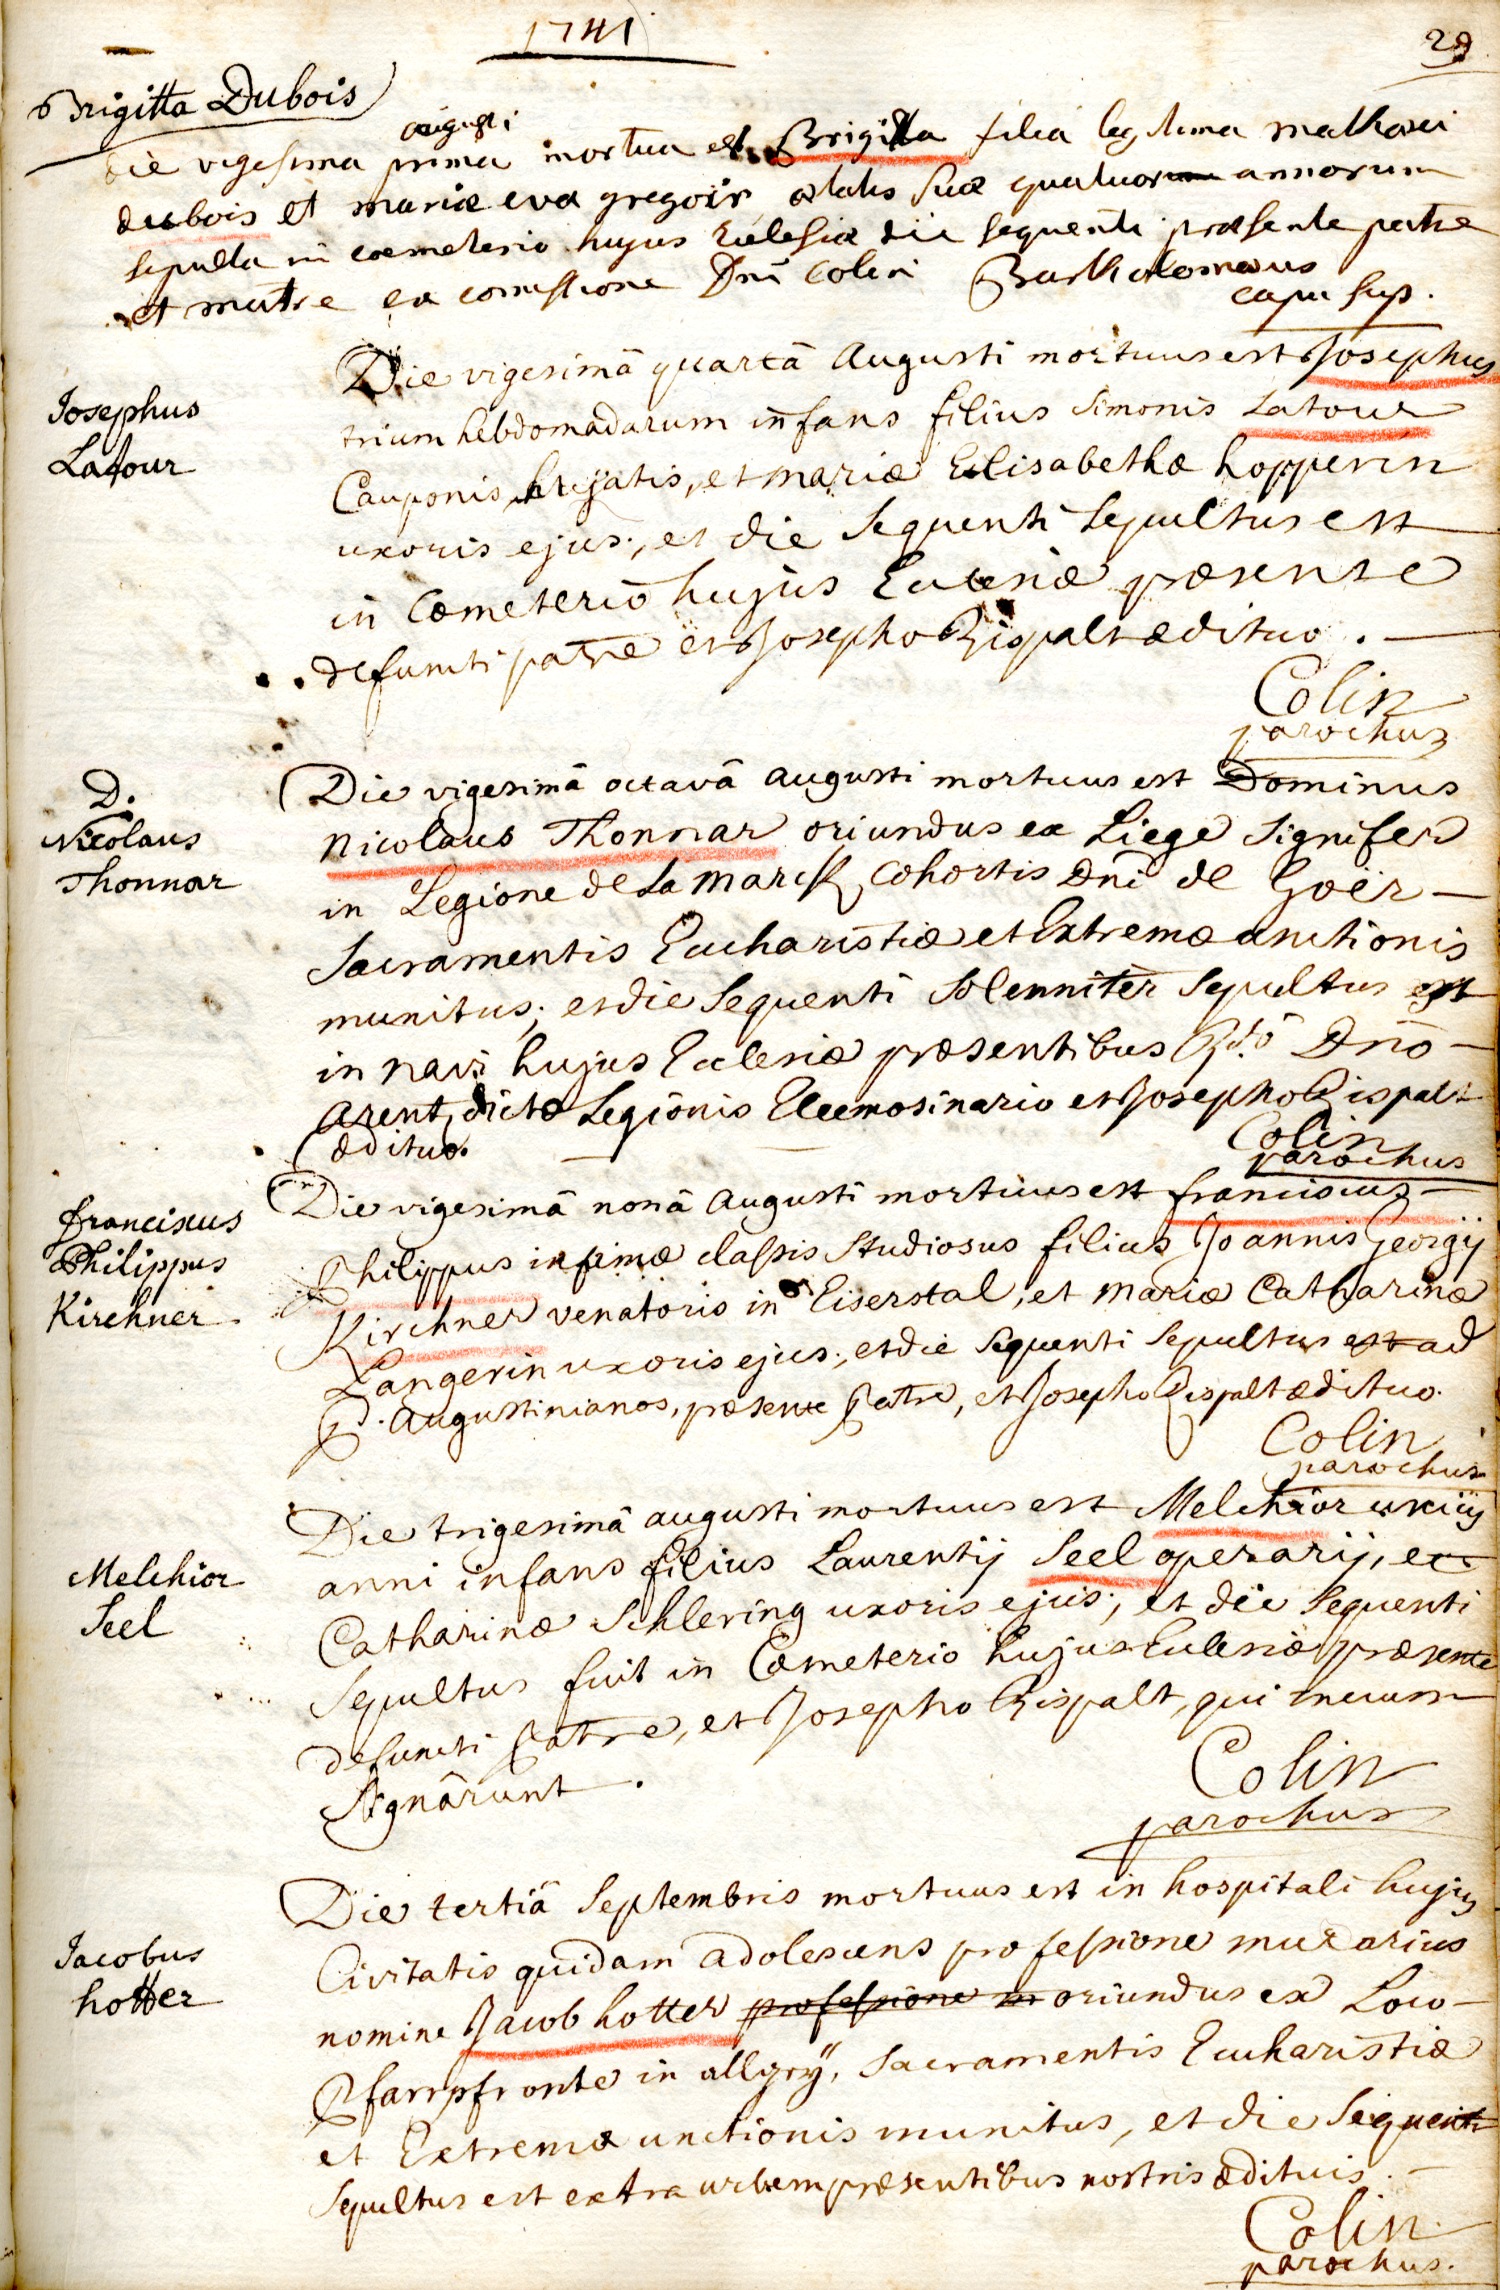 1741
29
Brigitta Dubois
augusti
die vigesima prima mortua est Brigitta filia legitima mathaei
dubois et mariæ eva gregoir ætatis suæ quatuor annorum
sepulta in coemeterio hujus Eclesiæ die sequenti præsente patre
et matre ex comissione Dni Colin Bartholomæus
capu sup.
Josephus
Latour
Die vigesimâ quartâ Augusti mortuus est Josephus
trium hebdomadarum infans filius Simonis Latour
Cauponis et mariæ Elisabethæ hopperin
uxoris ejus; et die sequenti sepultus est
in Cæmeterio hujus Ecclesiæ præsente
defuncti patre et Josepho Rispalt ædituo.
Colin
parochus
D.
Nicolaus
Thonnar
Die vigesimâ octavâ augusti mortuus est Dominus
Nicolaus Thonnar oriundus ex Liege Signifer
in Legione de La Marck, Cohortis Dni de Goër
Sacramentis Eucharistiæ et Extremæ unctionis
munitus; et die sequenti solenniter sepultus est
in navi hujus Ecclesiæ præsentibus Rdo Dno
Arent, dictæ Legionis Eleemosinario et Josepho Rispalt
ædituo.
Colin
parochus
franciscus
Philippus
Kirchner
Die vigesimâ nonâ Augusti mortuus est franciscus
Philippus infimæ classis studiosus filius Joannis Georgij
Kirchner venatoris in Eiserstal, et Mariæ Catharinæ
Langerin uxoris ejus; et die sequenti sepultus est ad
P. Augustinianos, præsente Patre, et Josepho Rispalt ædituo.
Colin
parochus
Melchior
Seel
Die trigesimâ augusti mortuus est Melchior unius
anni infans filius Laurentij Seel operarij, et
Catharinæ Schlering uxoris ejus; et die sequenti
Sepultus fuit in Cæmeterio hujus Ecclesiæ præsente
defuncti Patre, et Josepho Rispalt, qui mecum
signârunt.
Colin
parochus
Jacobus
hotter
Die tertiâ Septembris mortuus est in hospitali hujus
Civitatis quidam adolescens professione murarius
nomine Jacob hotter professione m oriundus ex Loco
Pfarrpfronte in allgey, Sacramentis Eucharistiæ
et Extremæ unctionis munitus, et die sequenti
sepultus est extra urbem præsentibus nostris ædituis.
Colin
parochus.